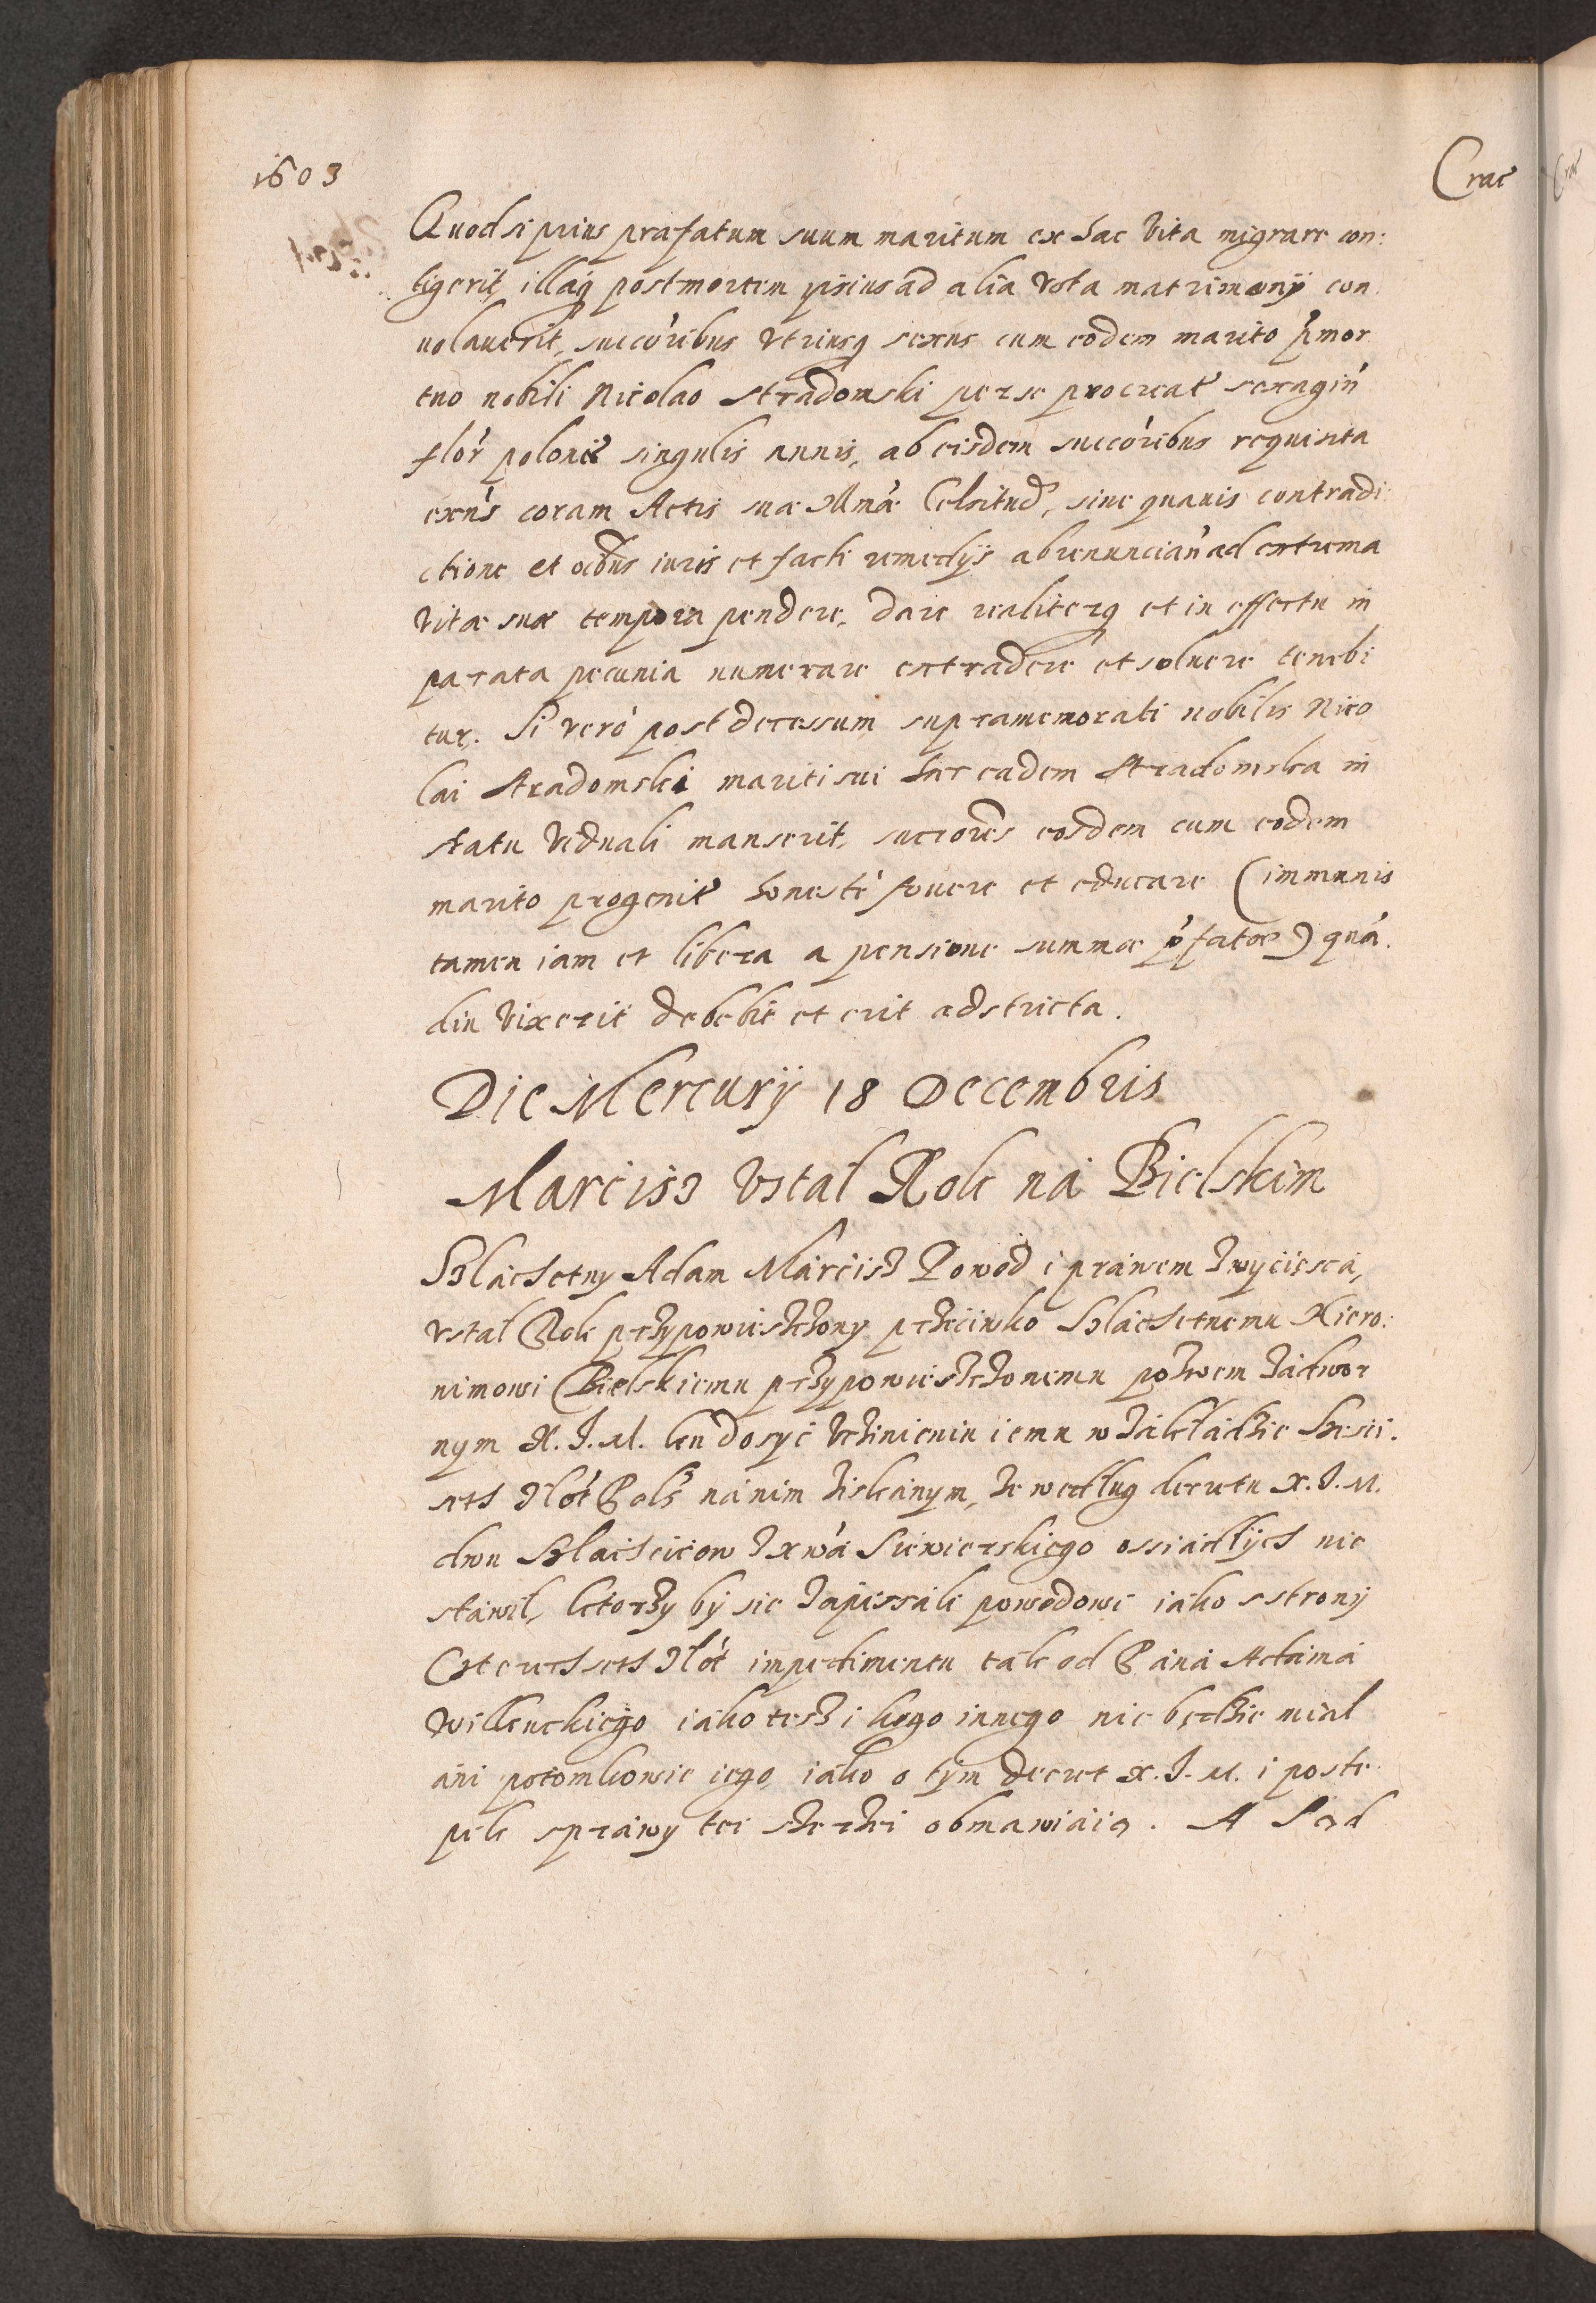 1603
Crac
Quodsi prius præfatum suum maritum ex hac vita migrare con:
tigerit, illaq postmortem ipsius ad alia vota matrimonÿ con
uolauerit, succoribus vtriusq sexus cum eodem marito pmor
tuo nobili Nicolao Stradomski per se procreat sexagin
flor polonic singulis annis, ab eisdem succoribus requisita
exns coram Actis suæ Illmæ Celsitud, sine quauis contradi
ctione et oibus iuris et facti remedÿs abrenuncian ad extrema
vitæ suæ tempora pendere, dare realiterq et in effectu in
parata pecunia numerare extradere et soluere tenebi
tur. Si verò post decessum supramemorati nobilis Nico
lai Stradomski mariti sui hæc eadem Stradomska in
statu viduali manserit, succores eosdem cum eodem
marito progenit honestè fouere et educare (immunis
tamen iam et libera a pensione summæ pfatæ) quá
diu vixerit debebit et erit adstricta.
Die Mercurÿ 18 Decembris
Marcisz vstal Rok ná Bielskim
Szláchetny Adam Márcisz Powod i práwem zwyciesca,
vstal Rok przypowieszczony przeciwko Szláchetnemu Hiero:
nimowi Bielskiemu przypowieszczonemu pozwem zádwor
nym X. J. M. ku dosyc vczinieniu iemu w zákládzie szesci.
seth Zlot Pols ná nim ziskánym, że według decretu X. J. M.
dwu Szláchcicow Xwá Siewierskiego ossiádłÿch nie
stáwił, ktorzy bÿ sie zápissáli powodowi iáko s stronÿ
Czterech seth Zlot impedimentu ták od Páná Adámá
Willenckiego iáko tesz i kogo innego nie będzie miał
áni potomkowie iego, iáko o tÿm decret X. J. M. i poste
pek spráwy tei szerzei obmawiáią. A Sąd